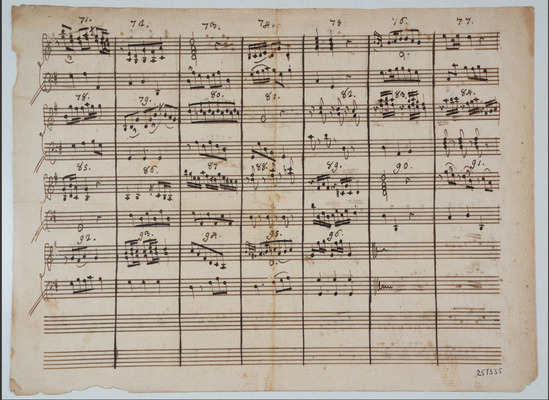 71. 72. 73. 74. 75 76. 77.
78. 79. 80. 81. 82. 83. 84.
85. 86. 87 88. 89. 90. 91.
92. 93. 94. 95. 96.